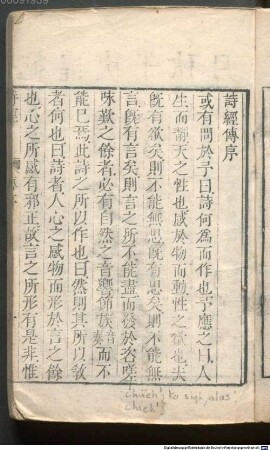 詩經傳序
或有問於予曰詩何爲而作也予應之曰人
生而靜天之性也感於物而動性之欲也夫
既有欲矣則不能無思既有思矣則不能無
言既有言矣則言之所不能盡而發於咨嗟
咏歎之餘者必有自然之音響節族而不
能已焉此詩之所以作也曰然則其所以敎
者何也曰詩者人心之感物而形於言之餘
也心之所感有邪正故言之所形有是非惟